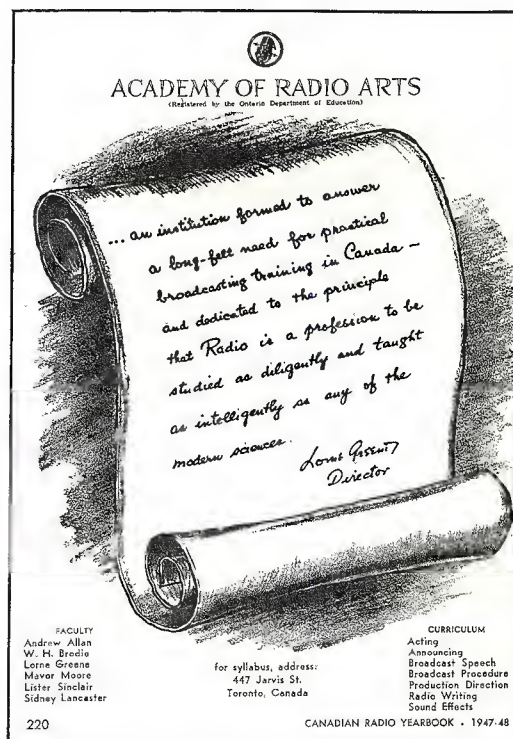 ACADEMY OF RADIO ARTS
(Registered by the Ontario Department of Education)
... an institution formed to answer
a long-felt need for practical
broadcasting training in Canada —
and dedicated to the principle
that Radio is a profession to be
studied as diligently and taught
as intelligently as any of the
modern sciences.
Lorne Greene
Director
FACULTY
Andrew Allan
W. H. Brodie
Lorne Greene
Mavor Moore
Lister Sinclair
Sidney Lancaster
for syllabus, address:
447 Jarvis St.
Toronto, Canada
CURRICULUM
Acting
Announcing
Broadcast Speech
Broadcast Procedure
Production Direction
Radio Writing
Sound Effects
220
CANADIAN RADIO YEARBOOK • 1947-48